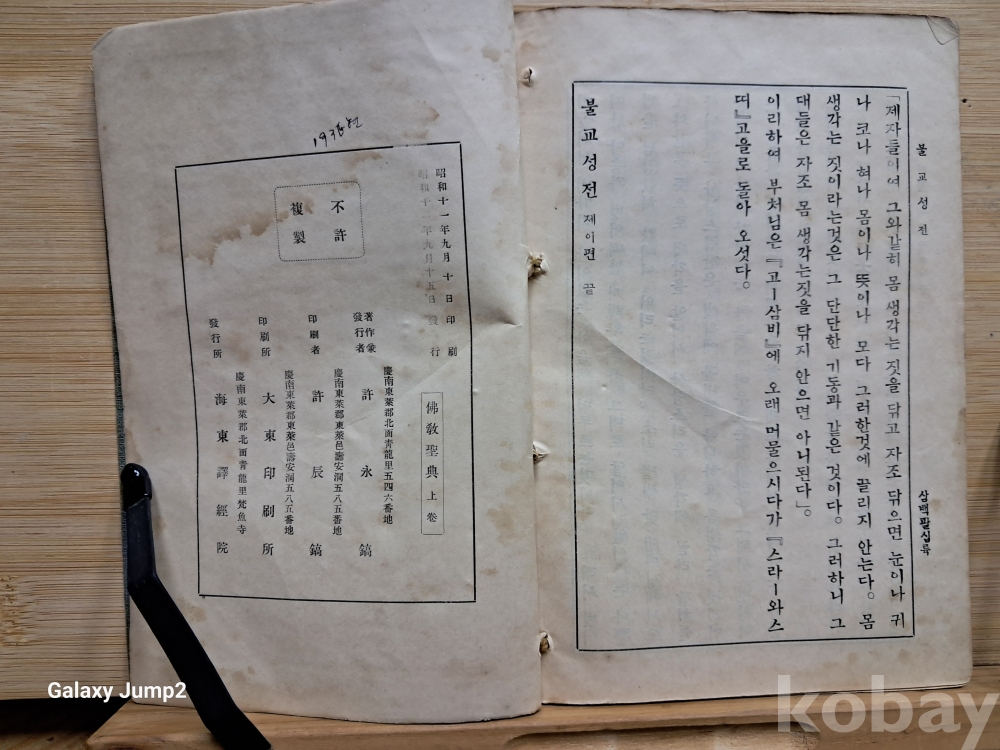 불교성전
삼백팔십륙
「제자들이여 그와같히 몸 생각는 짓을 닦고 자조 닦으면 눈이나 귀
나 코나 혀나 몸이나 뜻이나 모다 그러한것에 끌리지 안는다。몸
생각는 짓이라는것은 그 단단한 기동과 같은 것이다。그러하니 그
대들은 자조 몸 생각는짓을 닦지 안으면 아니된다」。
이리하여 부처님은『고ー삼비』에 오래 머물으시다가『스라ー와스
띠』고을로 돌아 오섯다。
불교성전 제이편 끝
1936년
昭和十一年九月十日印刷
昭和十一年九月十五日發行
不許
複製
佛敎聖典 上卷
慶南東萊郡北面靑龍里五四六番地
著作兼
發行者 許永鎬
慶南東萊郡東萊邑壽安洞五八五番地
印刷者 許辰鎬
慶南東萊郡東萊邑壽安洞五八五番地
印刷所 大東印刷所
慶南東萊郡北面靑龍里梵魚寺
發行所 海東譯經院
Galaxy Jump2
kobay